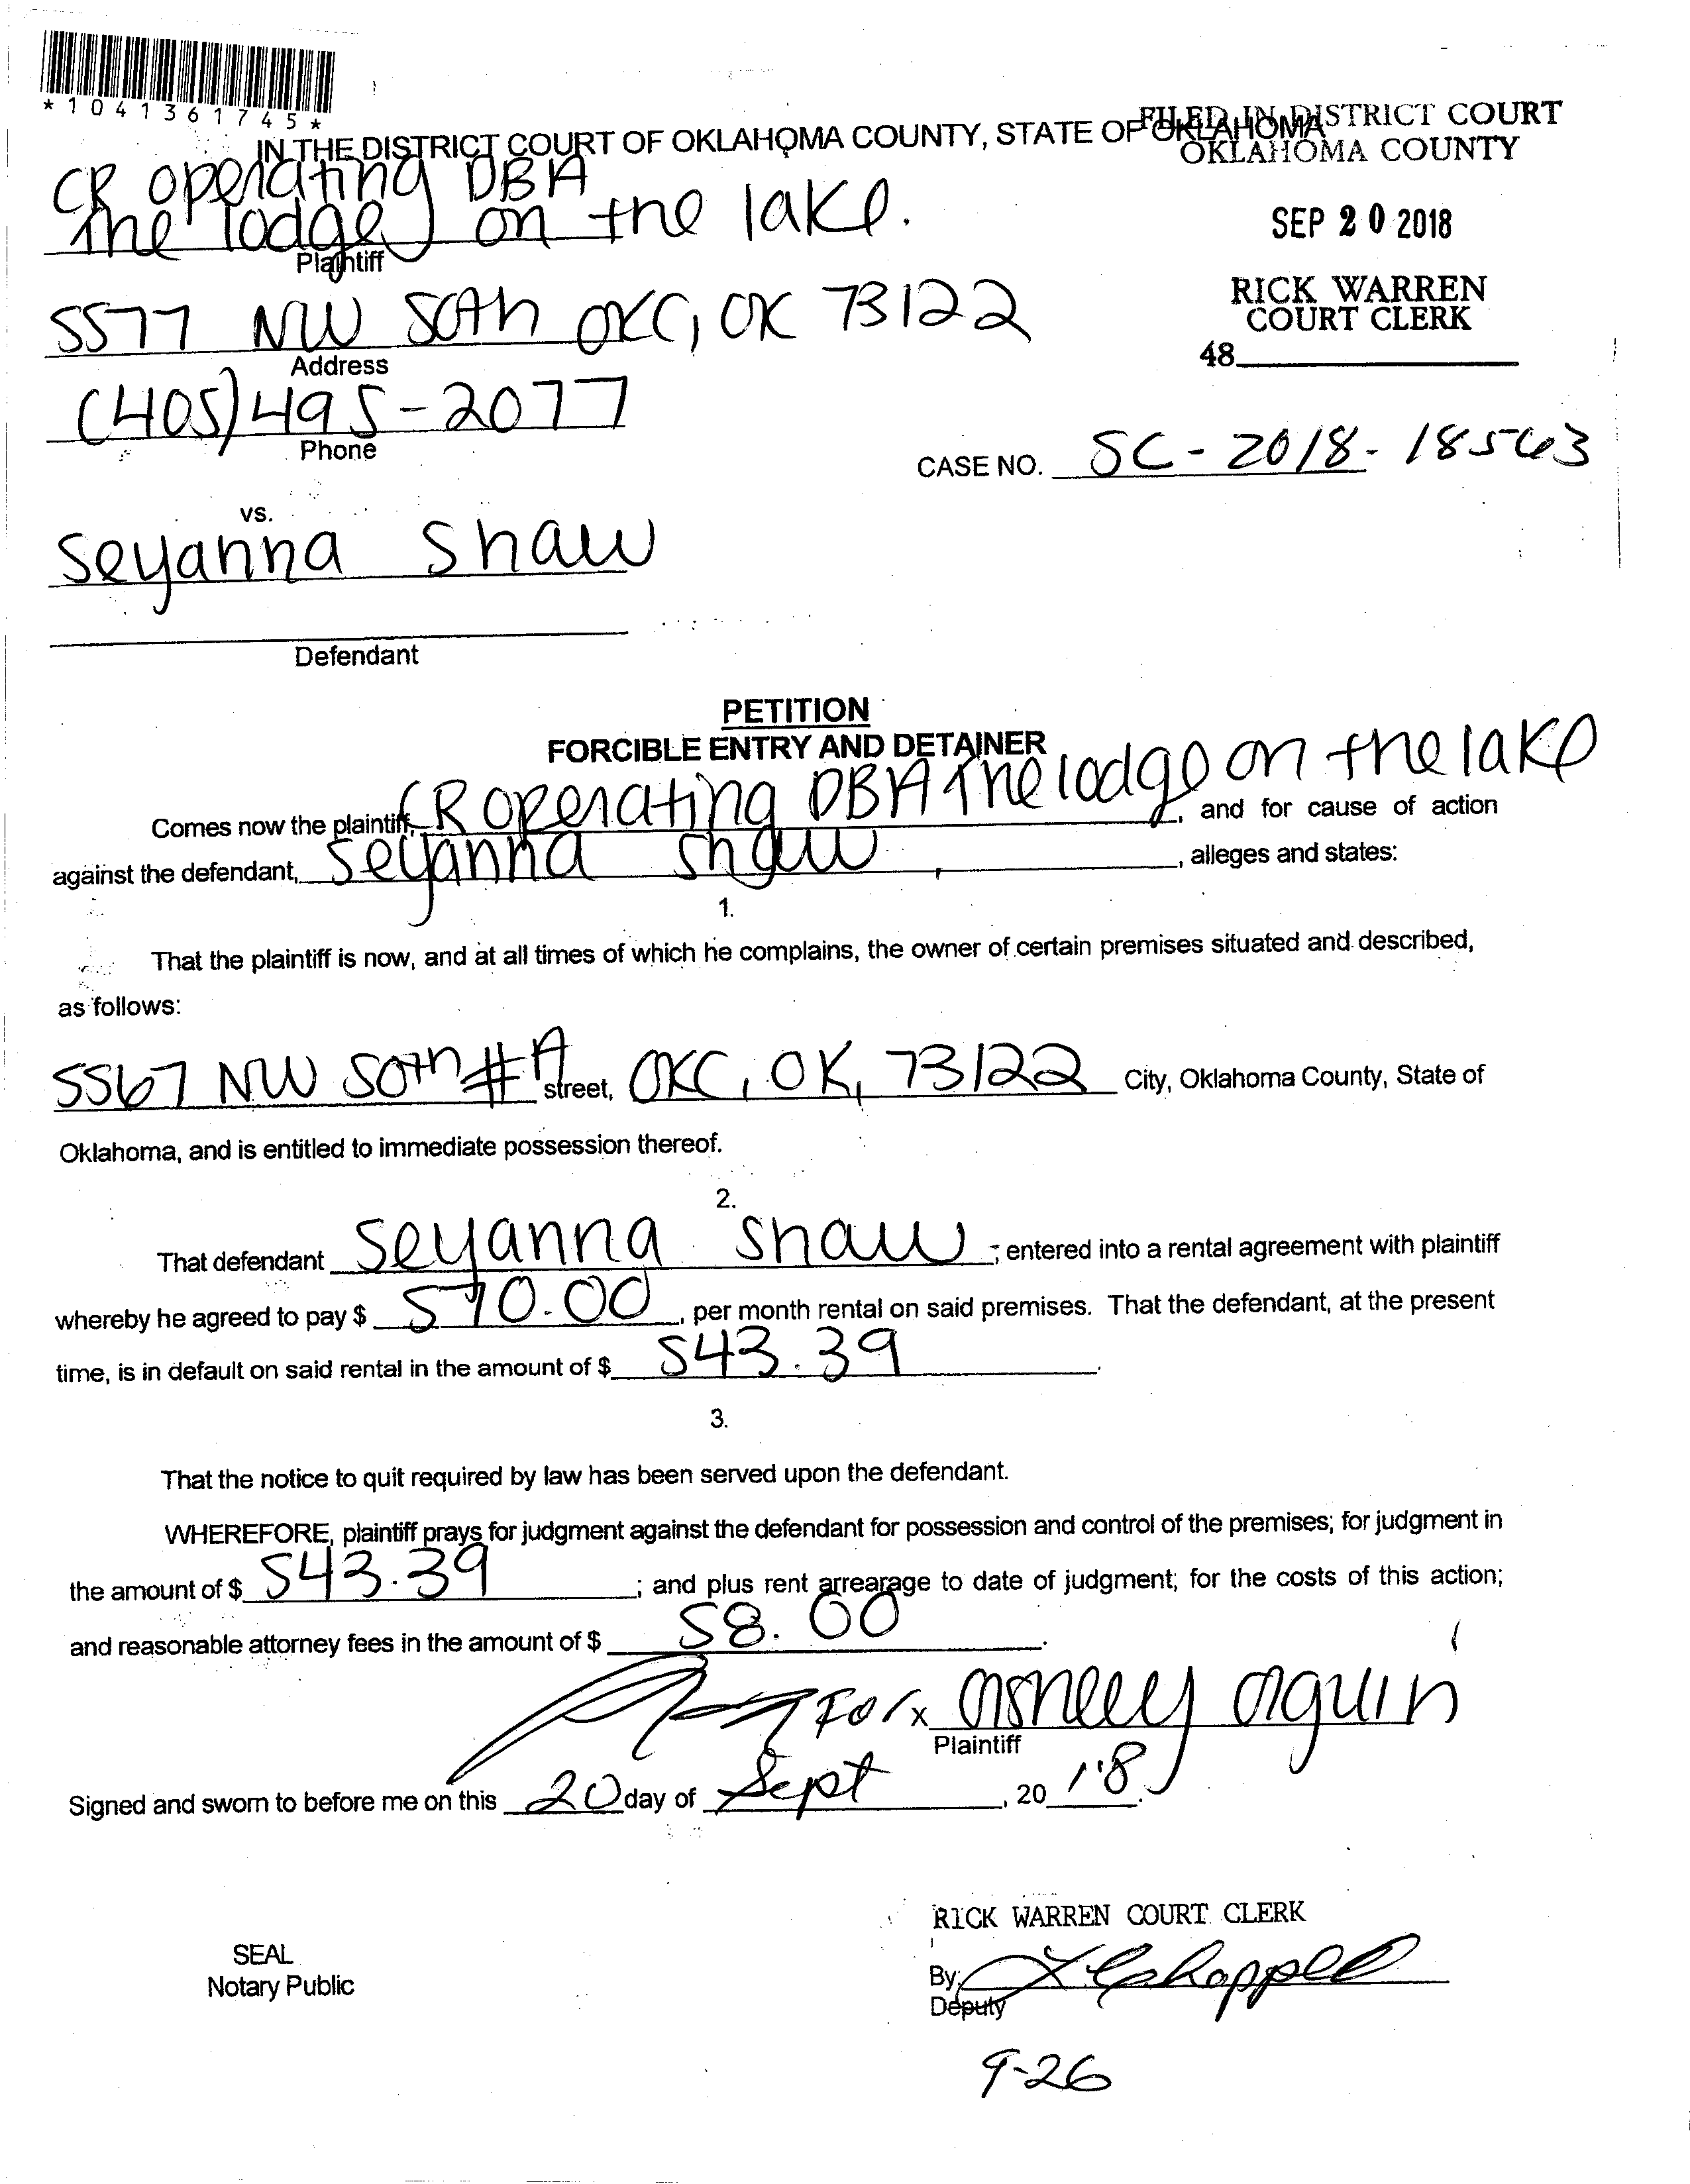 *1041361745*
IN THE DISTRICT COURT OF OKLAHOMA COUNTY, STATE OF OKLAHOMA
FILED IN DISTRICT COURT
OKLAHOMA COUNTY
CR operating DBA
the lodge on the lake.
Plaintiff
SEP 20 2018
5577 NW 50th OKC, OK 73122
Address
RICK WARREN
COURT CLERK
48
(405)495-2077
Phone
CASE NO. SC-2018-18563
vs.
Seyanna Shaw
Defendant
PETITION
FORCIBLE ENTRY AND DETAINER
Comes now the plaintiff, CR operating DBA The lodge on the lake, and for cause of action
against the defendant, Seyanna Shaw, alleges and states:
1.
That the plaintiff is now, and at all times of which he complains, the owner of certain premises situated and described,
as follows:
5567 NW 50th #A street, OKC, OK, 73122 City, Oklahoma County, State of
Oklahoma, and is entitled to immediate possession thereof.
2.
That defendant Seyanna Shaw; entered into a rental agreement with plaintiff
whereby he agreed to pay $ 570.00, per month rental on said premises. That the defendant, at the present
time, is in default on said rental in the amount of $ 543.39.
3.
That the notice to quit required by law has been served upon the defendant.
WHEREFORE, plaintiff prays for judgment against the defendant for possession and control of the premises; for judgment in
the amount of $ 543.39; and plus rent arrearage to date of judgment; for the costs of this action;
and reasonable attorney fees in the amount of $ 58.00.
For x Ashley Aguin
Plaintiff
Signed and sworn to before me on this 20 day of Sept, 2018.
RICK WARREN COURT CLERK
SEAL
Notary Public
By:
Deputy
9-26